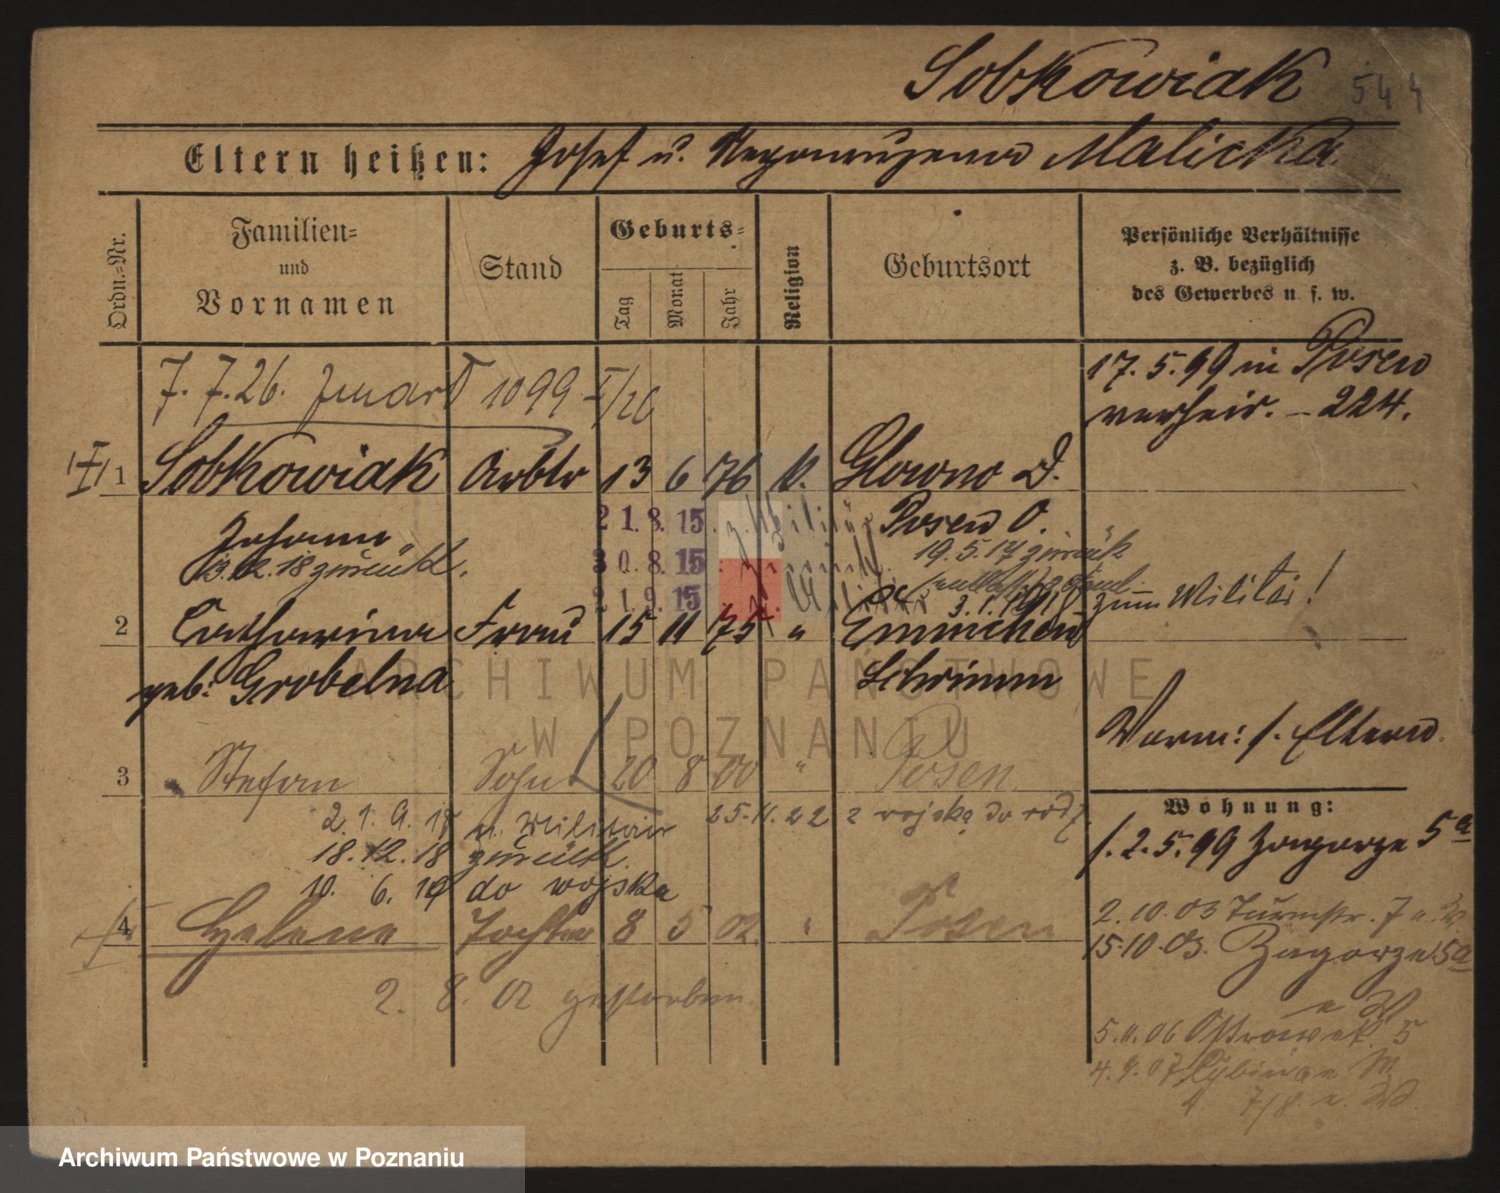 Sobkowiak 544
Eltern heißen: Josef u. Nepomuzena Malicka
Ordn.-Nr.
Familien=
und
Vornamen
Stand
Geburts=
Tag
Monat
Jahr
Religion
Geburtsort
Persönliche Verhältnisse
z. B. bezüglich
des Gewerbes u. s. w.
7. 7. 26. 1099
17. 5. 99 in Posen
verheir. – 224.
1 Sobkowiak Arbtr 13 6 76 k. Glowno D.
Johann 21. 8. 15. z. Militär Posen O.
13.12.18 zurück. 30. 8. 15. zurück 19. 5. 17 zurück
21. 9. 15. z. Militär 3. 1. 1918 zum Militär!
2 Catharina Frau 15 11 75 " Emmchen
geb: Grobelna Schrimm
Vorm: s. Eltern.
3 Stefan Sohn 20 8 00 " Posen
Wohnung:
2. 1. 9. 18 z. Militair 25. 11. 22 z wojska do
18. 12. 18 zurück.
10. 6. 19 do wojska
s. 2. 5. 99 Zagorze 5a
4 Helene Tochter 8 5 02 " Posen
2. 8. 02 gestorben
2. 10. 03 Turmstr. 7 n. W
15. 10. 03. Zagorze 5a
n W
5. 11. 06 Ostrowek 5
4. 9. 07 Rybin W
7/8 n. W
ARCHIWUM PAŃSTWOWE
W POZNANIU
Archiwum Państwowe w Poznaniu